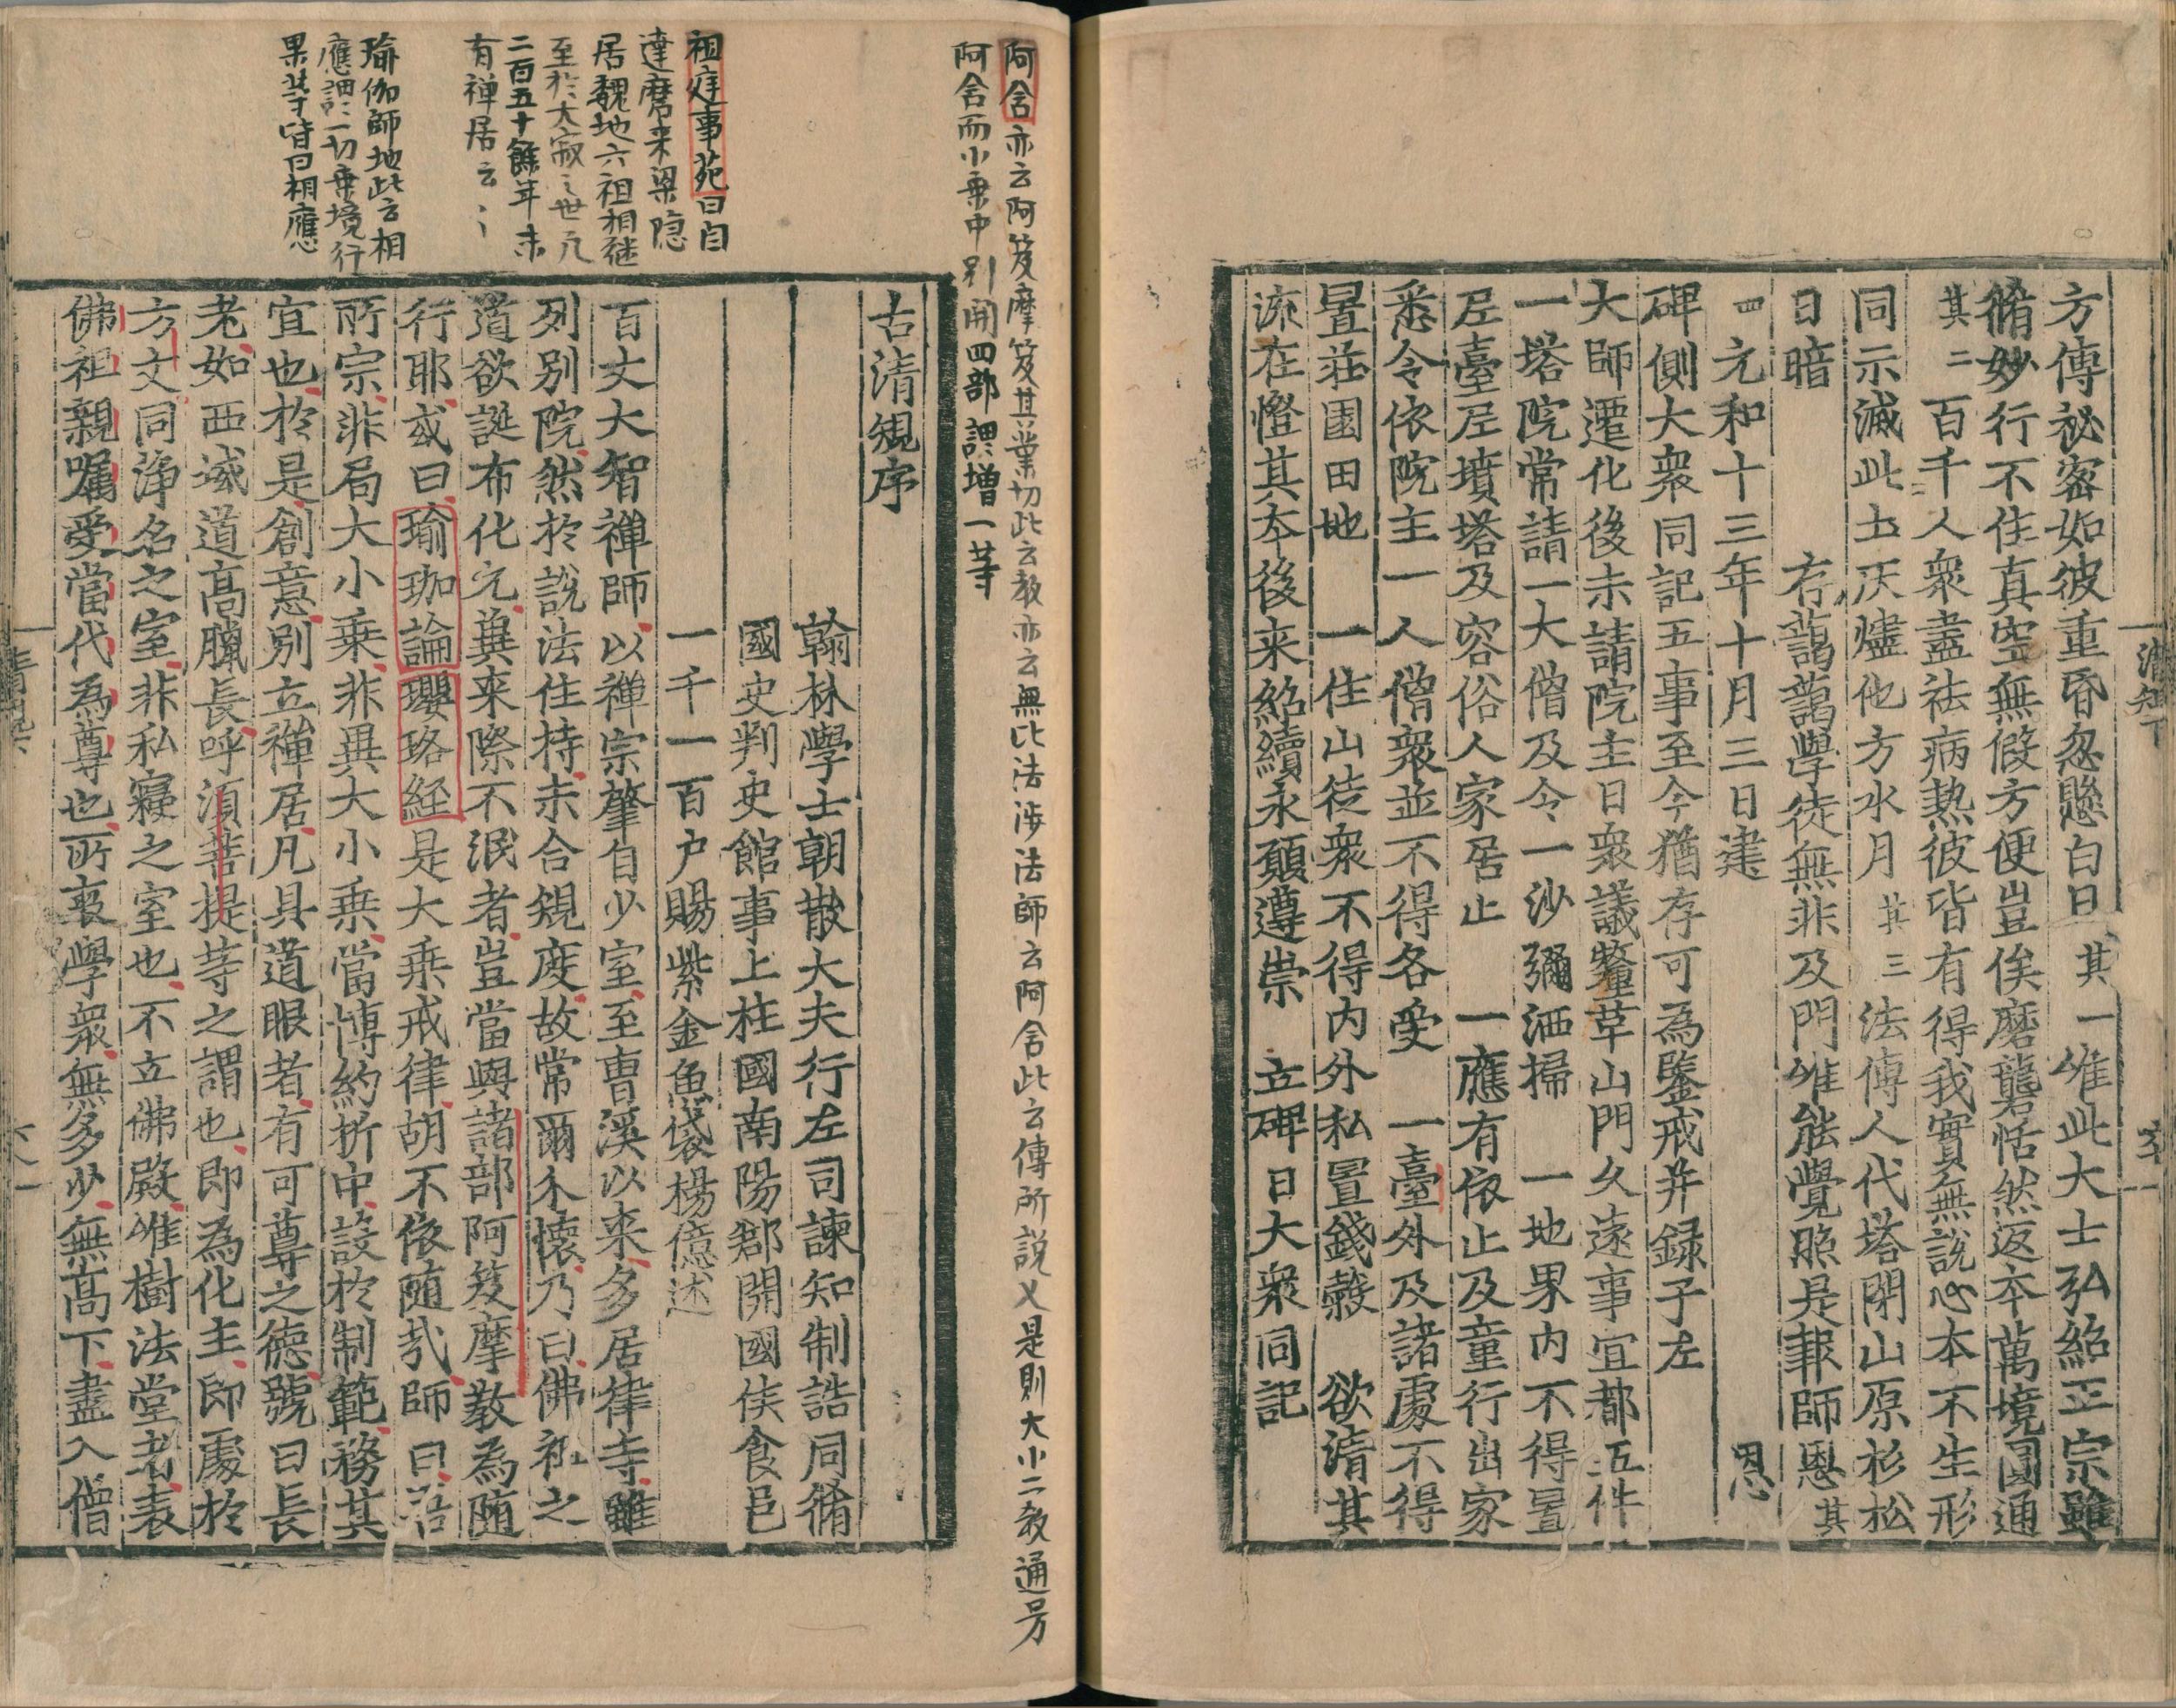 方傳祕密如彼重昏忽懸白日其一唯此大士弘紹正宗雖
脩妙行不住真空無假方便豈俟磨礱恬然返夲萬境圓通
其二百千人衆盡祛病熱彼皆有得我實無說心本不生形
同示滅此土灰燼他方水月其三法傳人代塔閉山原杉松
日暗
存藹藹學徒無非及門唯能覺照是報師恩其
四元和十三年十月三日建
碑側大衆同記五事至今猶存可為鑒戒并録于左
大師遷化後未請院主日衆議釐革山門久遠事宜都五件
一塔院常請一大僧及令一沙彌洒掃 一地界内不得置
尼臺尼墳塔及容俗人家居止 一應有依止及童行出家
悉令依院主一人僧衆並不得各受 一臺外及諸處不得
置莊園田地 一住山徒衆不得内外私置錢穀 欲清其
流在憕其夲後来紹續永願遵崇 立碑日大衆同記
恩
阿含亦云阿笈摩笈其業切此云教亦云無比法涉法師云阿含此云傳所説乂是則大小二教通号
阿含而小乗中別開四部謂増一等
祖庭事苑曰自
達磨来梁隠
居魏地六祖相継
至於大寂之世凡
二百五十餘年未
有禅居云々
瑜伽師地此云相
應謂一切乗境行
果等皆曰相應
古清規序
翰林學士朝散大夫行左司諫知制誥同脩
國史判史館事上柱國南陽郡開國侯食邑
一千一百户賜紫金魚袋楊億述
百丈大智禪師以禪宗肇自少室至曹溪以来多居律寺雖
列別院然於說法住持未合規度故常爾夲懷乃曰佛祖之
道欲誕布化元兾来際不泯者豈當與諸部阿笈摩教為随
行耶或曰瑜珈論瓔珞経是大乗戒律胡不依随㢤師曰吾
所宗非局大小乗非異大小乗當博約折中設於制範務其
宜也於是創意別立禪居凡具道眼者有可尊之德號曰長
老如西域道高臘長呼湏菩提等之謂也即為化主即處於
方丈同浄名之室非私寢之室也不立佛殿唯樹法堂者表
佛祖親嘱受當代為尊也所裒學衆無多少無高下盡入僧